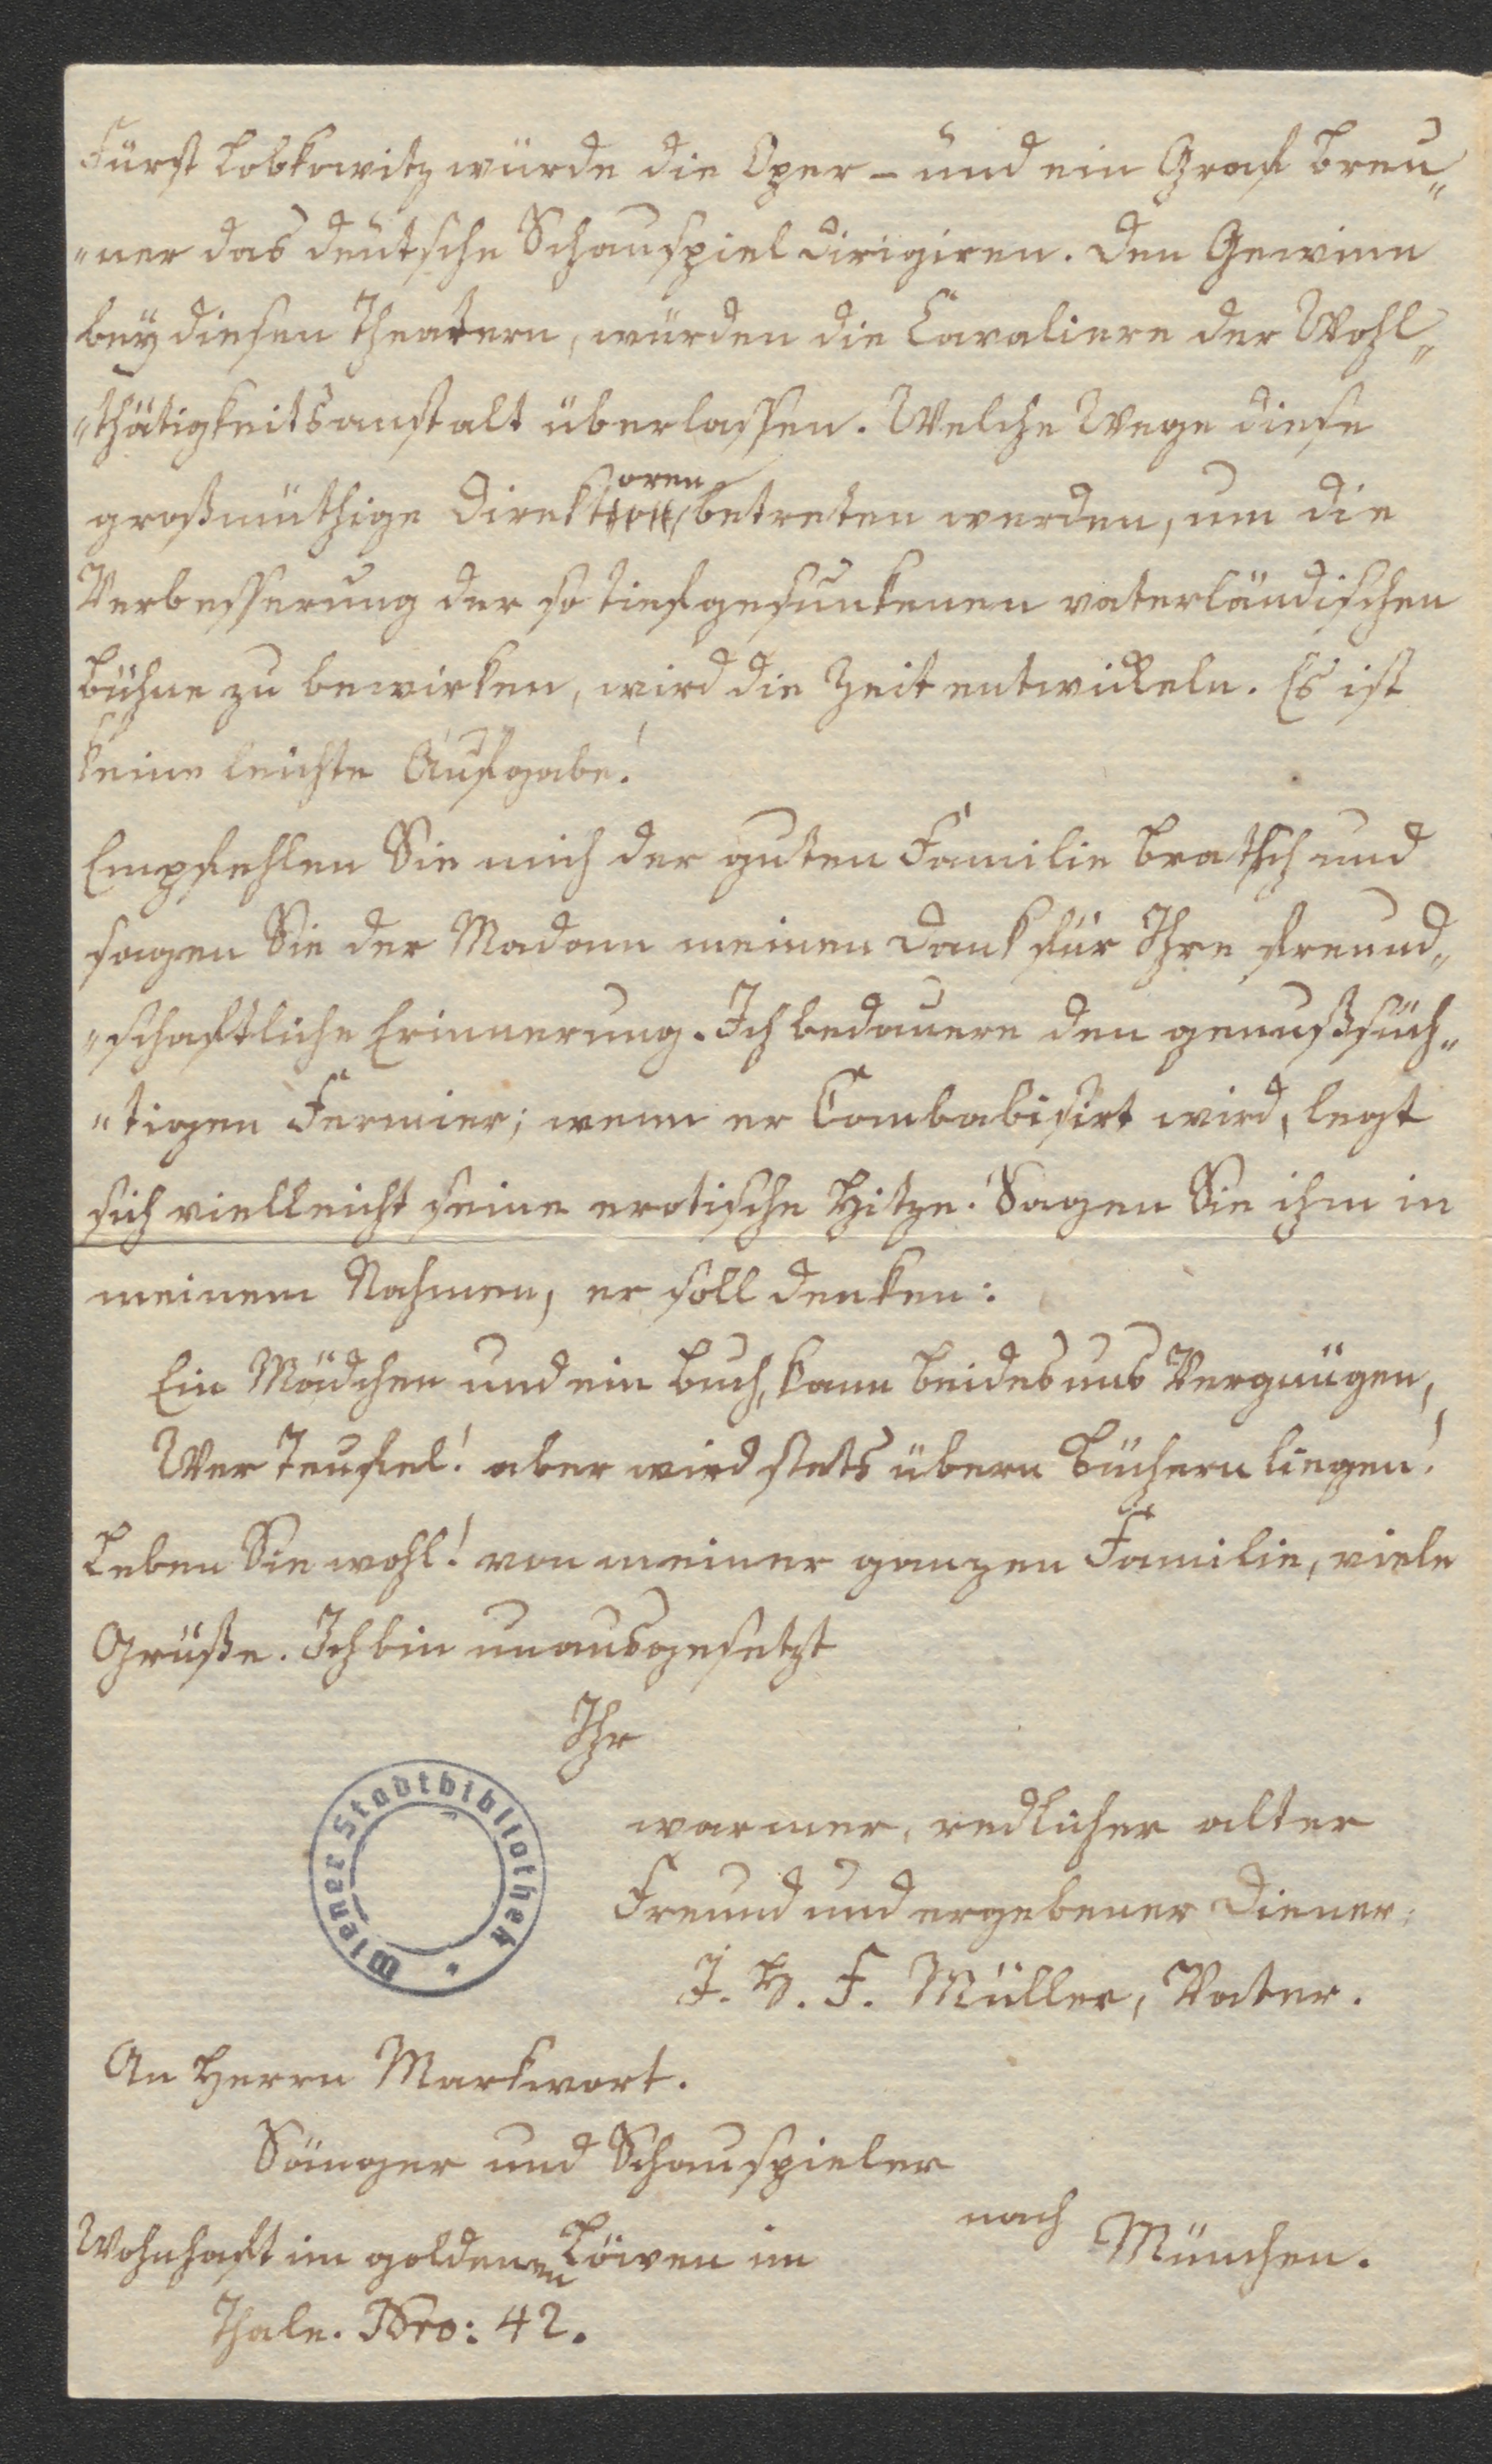 Fürst Lobkowitz würde die Oper – und ein Graf Breu„
„ner das deutsche Schauspiel dirigiren. Den Gewinn
bey diesen Theatern, würden die Cavaliere der Wohl„
„thätigkeitsanstalt überlassen. Welche Wege diese
oren
großmüthige Direkt betreten werden, um die
Verbesserung der so tiefgesunkenen vaterländischen
Bühne zu bewirken, wird die Zeit entwickeln. Es ist
keine leichte Aufgabe!
Empfehlen Sie mich der guten Familie Bratsch und
sagen Sie der Madam meinen Dank für Ihre freund„
„schaftliche Erinnerung. Ich bedauere den genußsüch„
„tigen Fermier; wenn er Combabisirt wird, legt
sich vielleicht seine erotische Hitze. Sagen Sie ihm in
meinem Nahmen, er soll denken:
Ein Mädchen und ein Buch, kann beides uns Vergnügen,
Wer Teufel! aber wird stets übern Büchern liegen!
Leben Sie wohl! von meiner ganzen Familie, viele
Grüße. Ich bin unausgesetzt
Ihr
warmer, redlicher alter
Freund und ergebener Diener:
J. H. F. Müller, Vater.
Wiener Stadtbibliothek
An Herrn Markwort.
Sänger und Schauspieler
nach München.
Wohnhaft im goldenen Löwen im
Thale. Nro: 42.